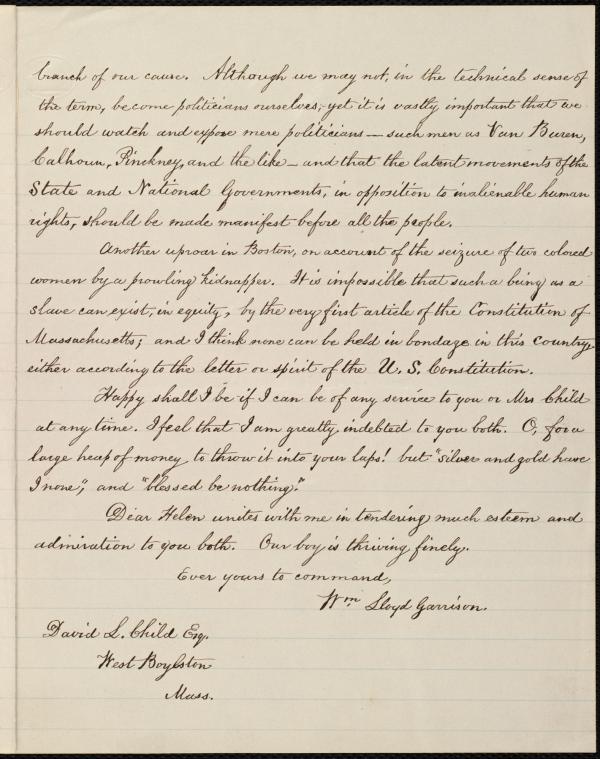 branch of our cause. Although we may not, in the technical sense of
the term, become politicians ourselves, yet it is vastly important that we
should watch and expose mere politicians — such men as Van Buren,
Calhoun, Pinkney, and the like — and that the latent movements of the
State and National Governments, in opposition to inalienable human
rights, should be made manifest before all the people.
Another uproar in Boston, on account of the seizure of two colored
women by a prowling kidnapper. It is impossible that such a being as a
slave can exist, in equity, by the very first article of the Constitution of
Massachusetts; and I think none can be held in bondage in this country,
either according to the letter or spirit of the U. S. Constitution.
Happy shall I be if I can be of any service to you or Mrs Child
at any time. I feel that I am greatly indebted to you both. O, for a
large heap of money to throw it into your laps! but "silver and gold have
I none", and "blessed be nothing".
Dear Helen unites with me in tendering much esteem and
admiration to you both. Our boy is thriving finely.
Ever yours to command,
Wm Lloyd Garrison.
David L. Child Esq.
West Boylston
Mass.